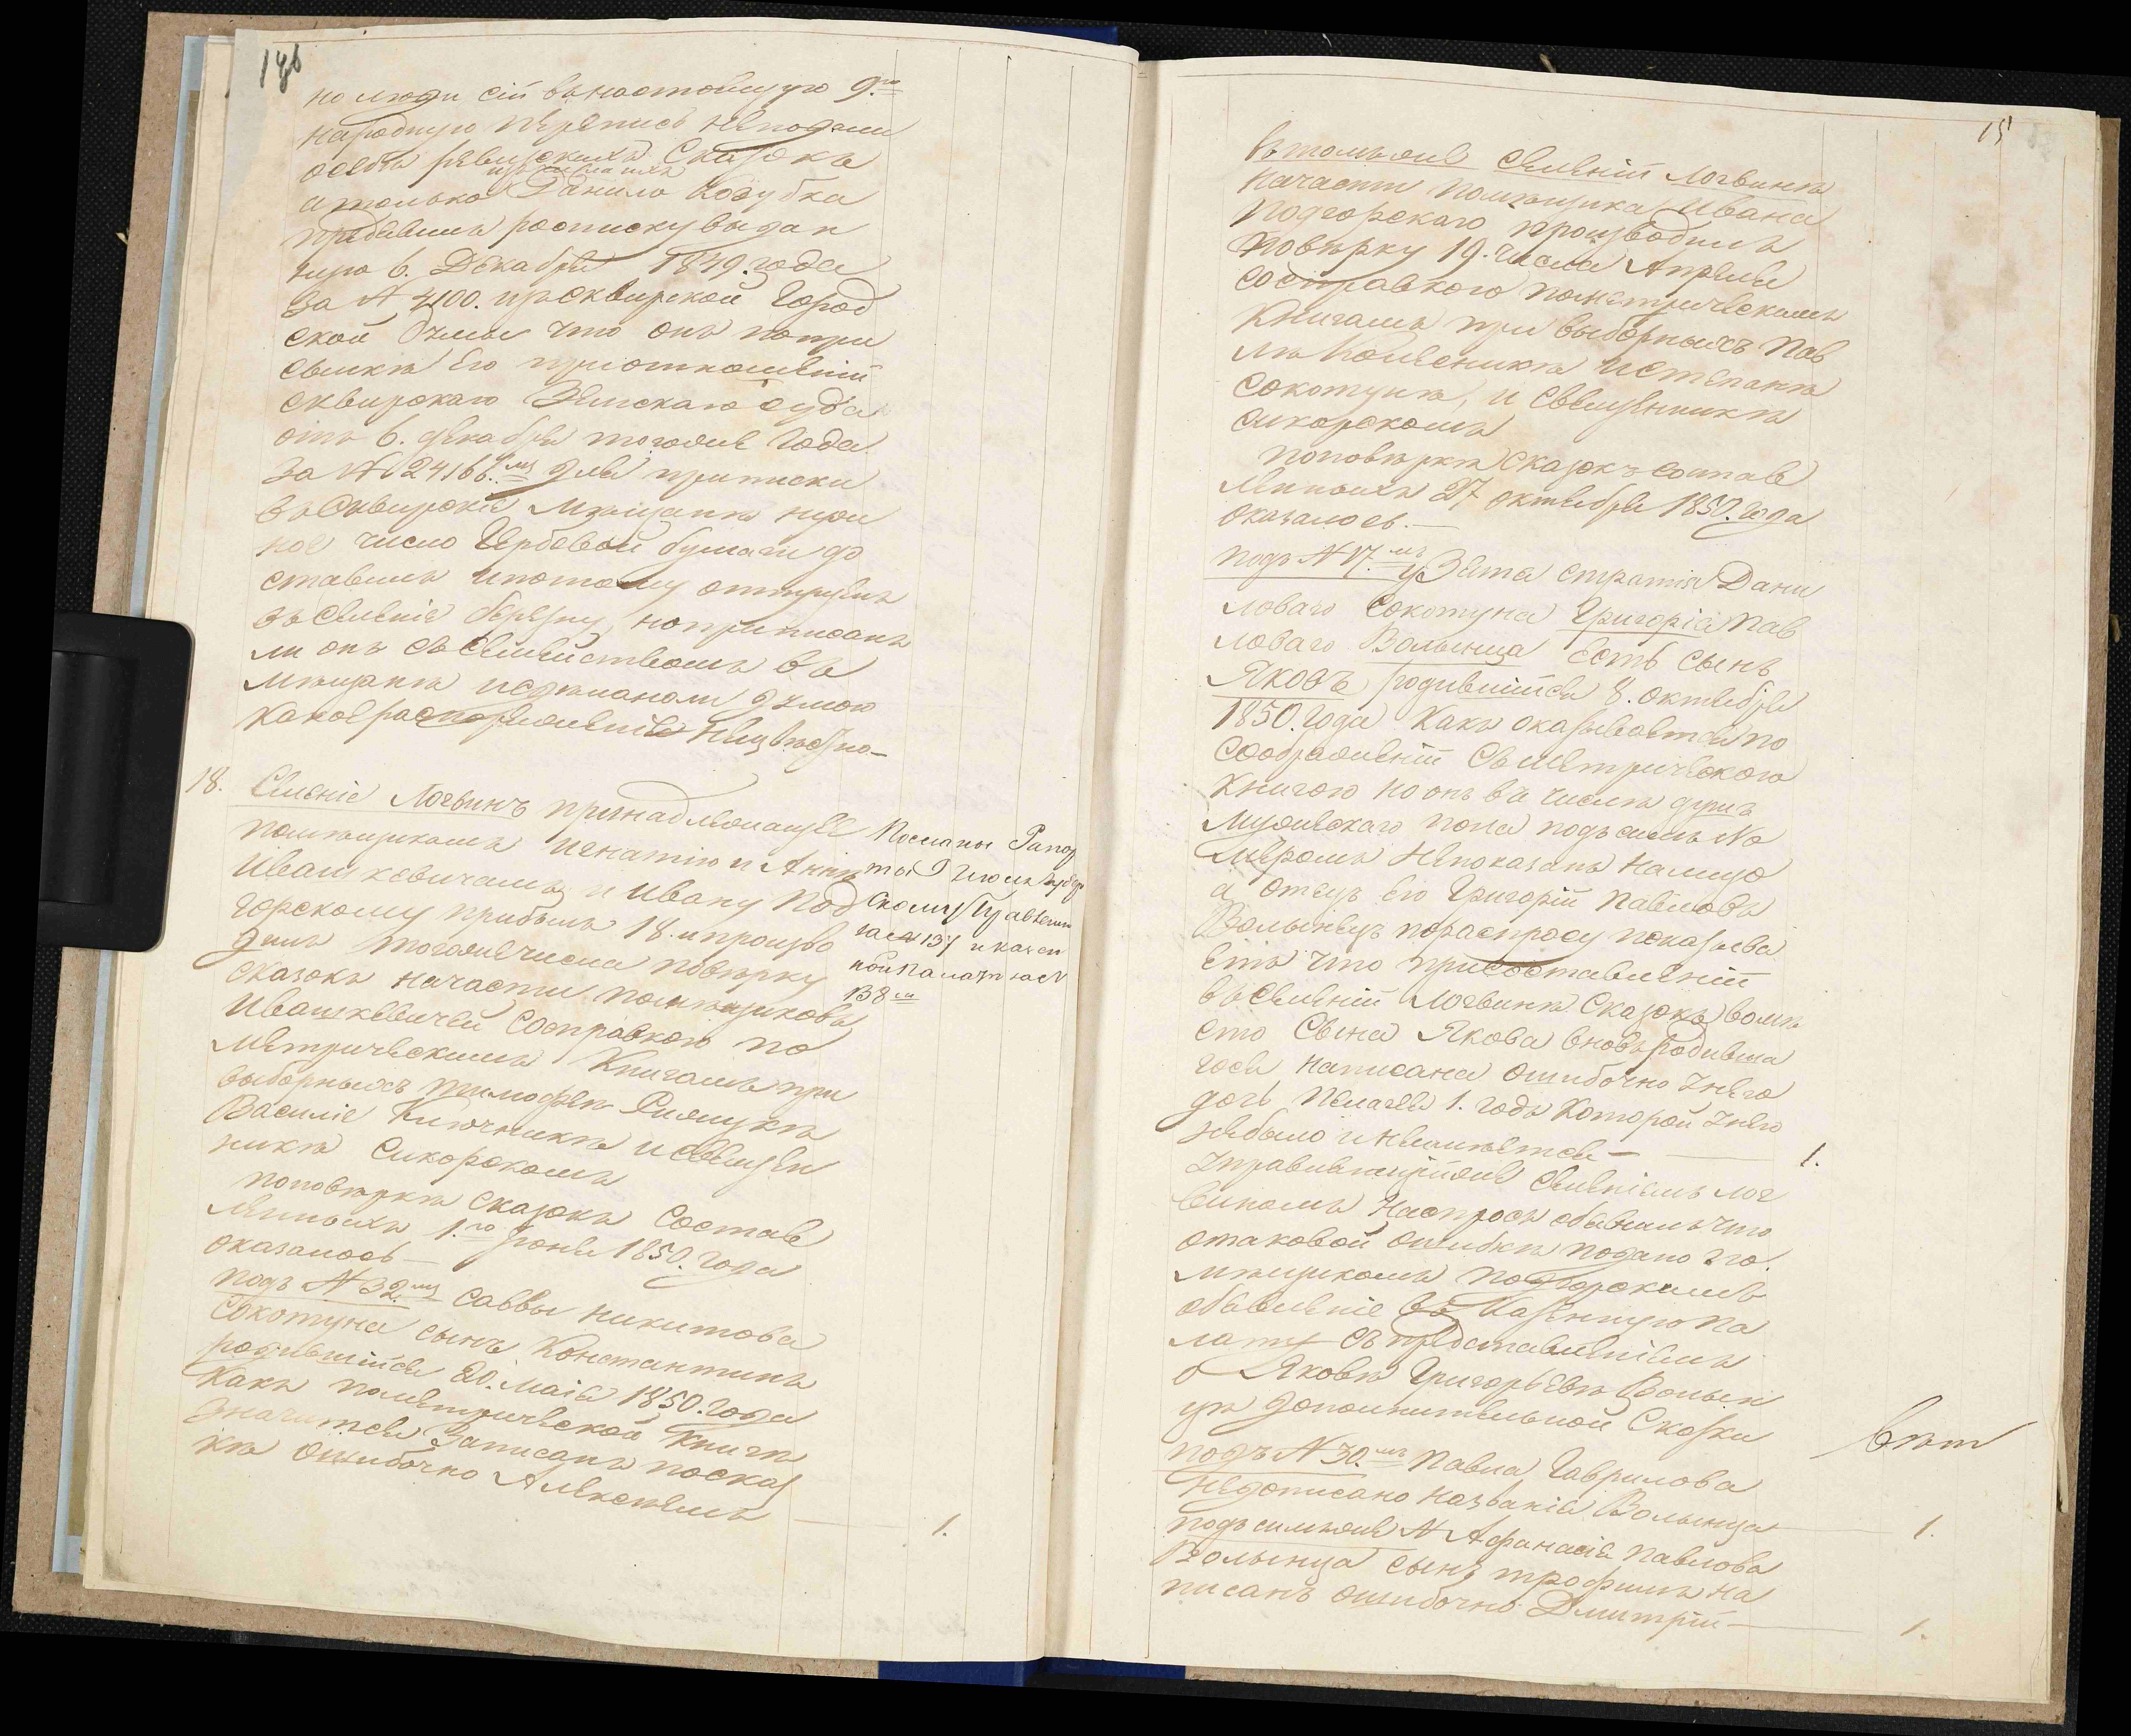 но люди сіи въ настоящую 9.ю
народную перепись неподали
осебѣ ревизскихъ Сказокъ
изъ числа ихъ
атолько Данило Козубка
предъявилъ росписку выдан
ную 6. Декабря 1849. года
за № 4100. изъ сквирской Город
ской Думы что онъ попри
сылкѣ его приотношеніи
сквирскаго Земскаго суда
отъ 6. декабря тогоже Года
за № 24166.мъ для приписки
въ Сквирскіе Мѣщане нуж
ное число Гербовой бумаги до
ставилъ ипотому отпущенъ
въ Селеніе Березну, ноприписанъ
ли онъ съ Семействомъ въ
мѣщане исдѣланоли думою
какое распоряженіе Неизвѣстно—
18. Селеніе Логвинъ принадлежащее
помѣщикамъ Игнатію и Аннѣ
Ивашкевичамъ и Ивану Под
горскому прибылъ 18. ипроизво
дилъ тогоже числа повѣрку
сказокъ начасти помѣщиковъ
Ивашкевичей Сосправкою по
метрическимъ Книгамъ при
выборныхъ Тимофеѣ
Василіе Ключникѣ и Священ
никѣ Сикорскомъ
Посланы Рапор
ты 9 Июля Губер
скому Правленію
за № 137 и казен
ной палатѣ за №
138 м
поповѣркѣ сказокъ Состав
ленныхъ 1.го Іюня 1850. года
оказалось—
подъ № 32.мъ Саввы Никитова
Сокотуна сынъ Константинъ
родившійся 20. Маія 1850. года
какъ пометрической книги
значится Записанъ посказ
кѣ ошибочно Алексѣемъ — 1.
15
втомъже Селеніи Логвинѣ
начасти помѣщика Ивана
Подгорскаго производилъ
повѣрку 19. числа Апреля
сосправкою пометрическимъ
Книгамъ при выборныхъ Пав
лѣ Колесникѣ иСтепанѣ
Сокотунѣ, и Священникѣ
Сикорскомъ
поповѣркѣ Сказокъ состав
ленныхъ 27 октября 1850. года
Оказалось.—
подъ № 17.мъ у Зятя Стратія Дани
ловаго Сокотуна Григорія Пав
ловаго Волынца есть сынъ
Яковъ родившійся 8. октября
1850. года какъ оказывается по
Соображеніи Съ Метрическою
Книгою но онъ въ числѣ душъ
Мужескаго пола подъ симъ Но
меромъ Непоказанъ Налицо
а отецъ его Григорій Павловъ
Волынецъ пораспросу показыва
етъ что присоставленіи
въ Селеніи Логвинѣ Сказокъ вомѣ
сто Сына Якова вновь родивша
гося написана ошибочно Унего
дочь Пелагея 1. года которой Унего
небыло и неимѣется — 1.
Управляющійже Селеніемъ Лог
виномъ Наспросъ объявилъ что
отаковой ошибкѣ подано Гю.
мѣщикомъ Подгорскимъ
объявленіе въ Казенную Па
лату съ представленіемъ
о Яковѣ Григорьевѣ Волын
цѣ дополнительной Сказки
подъ № 30.мъ Павла Гаврилова
недописано названія Волынца — 1.
подъ симъже № Афанасія Павлова
Волынца сынъ трофимъ на
писанъ ошибочно Дмитрій — 1.